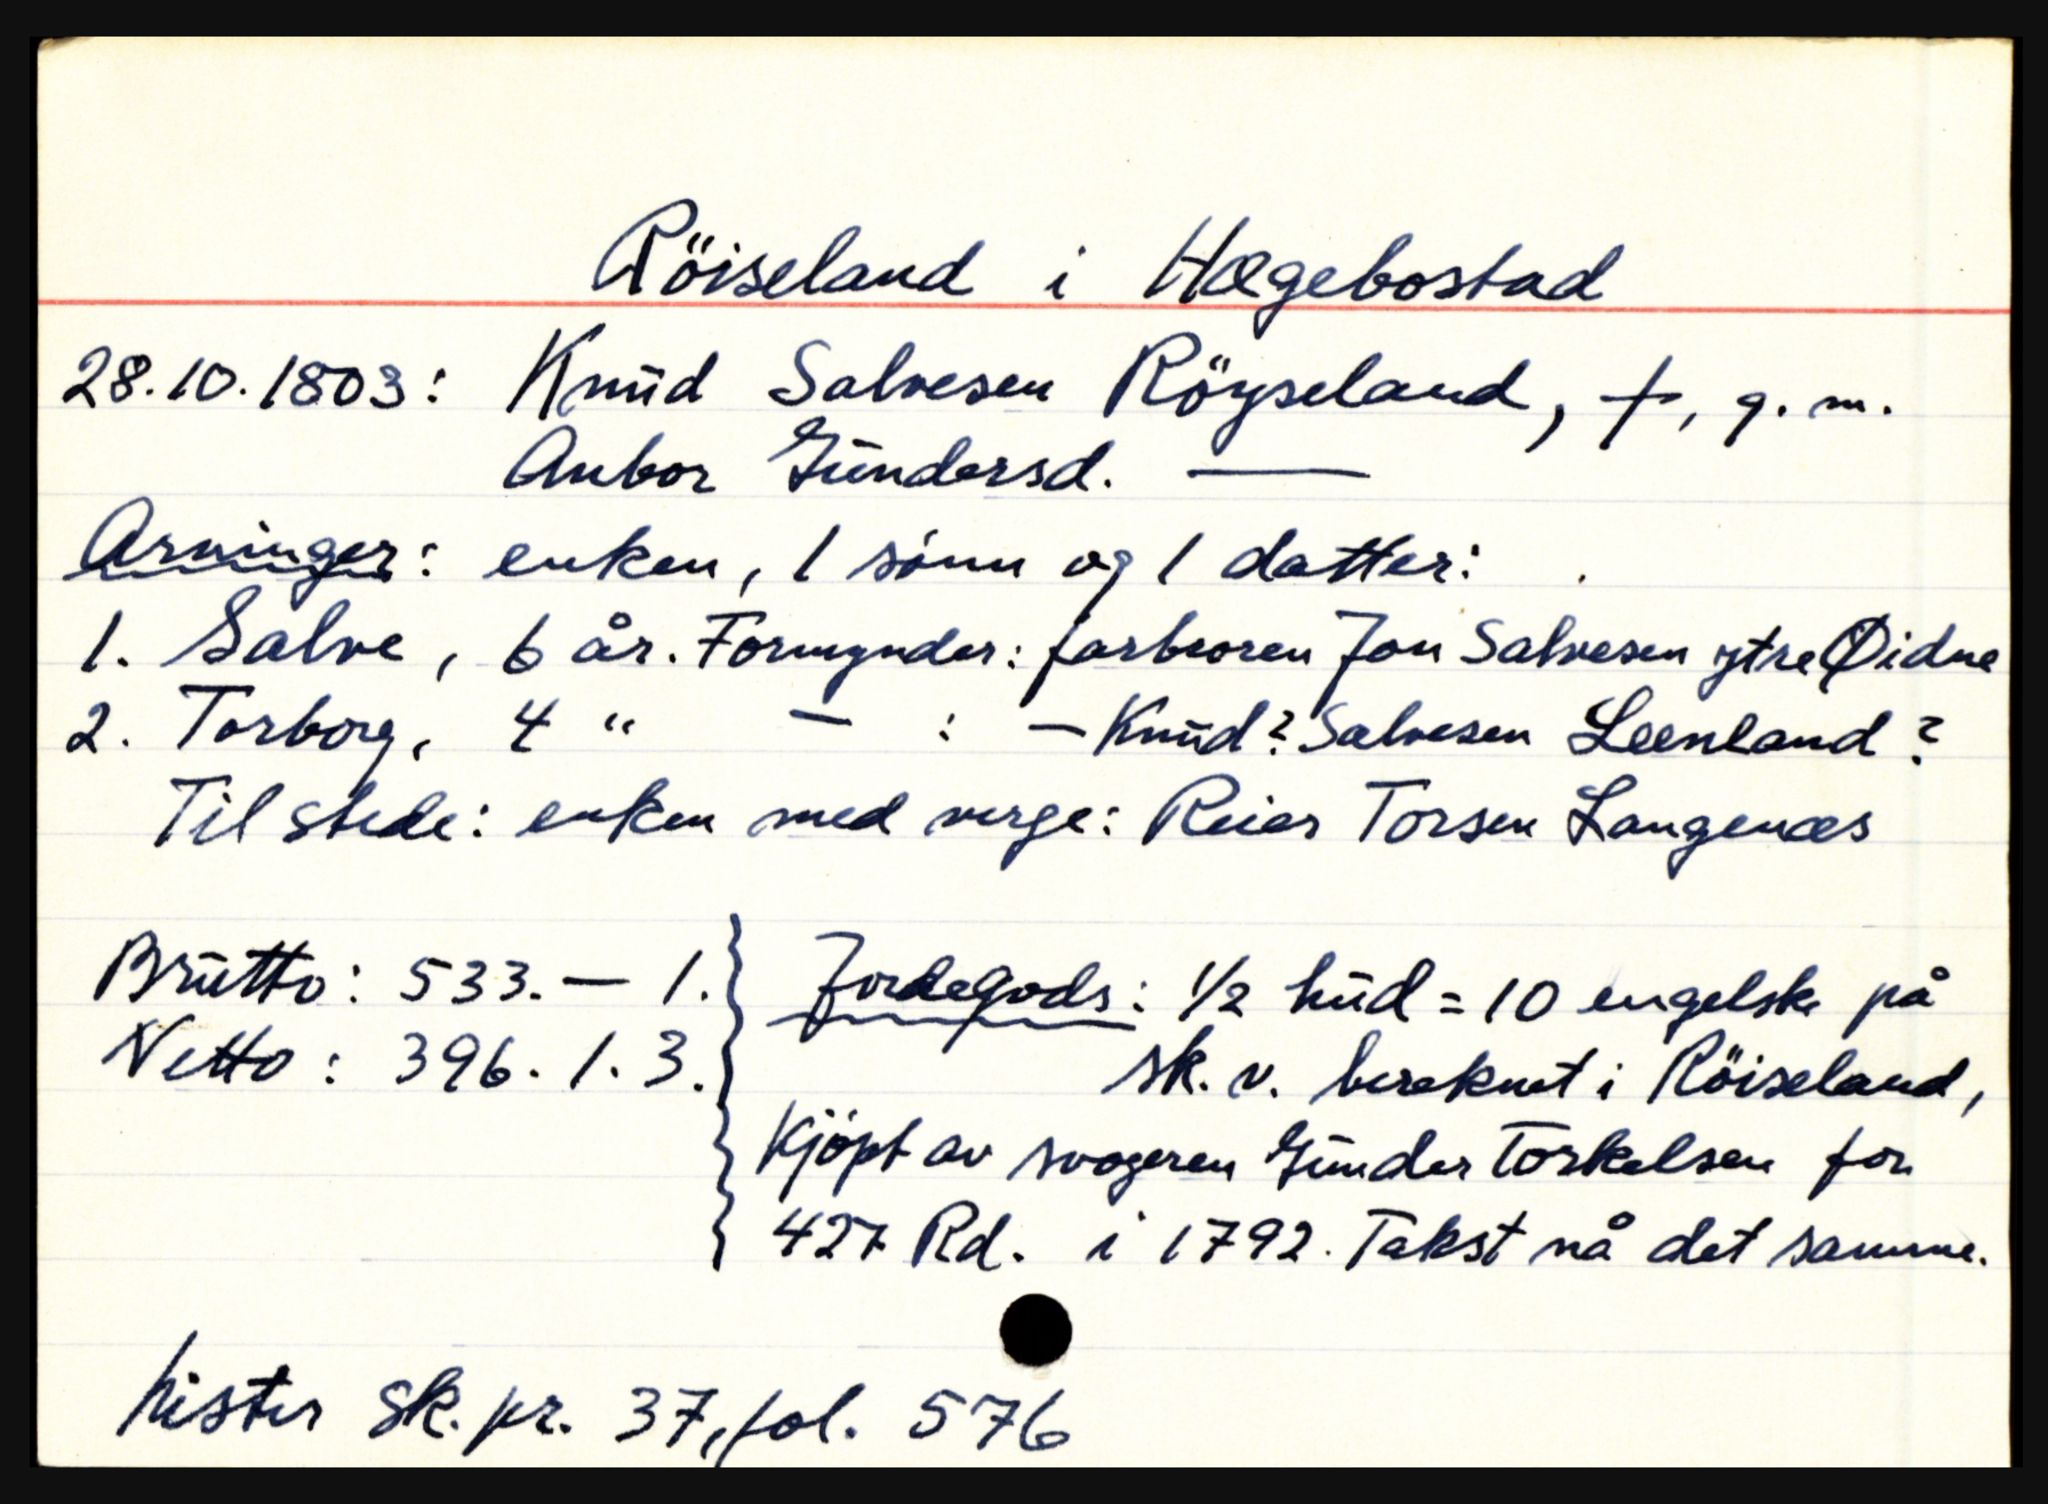 Röiseland i Hægebostad
28.10.1803: Knud Salvesen Röyseland, †, g. m.
Anbor Gundersd. —
Arvinger: enken, 1 sönn og 1 datter:
1. Salve, 6 år. Formynder: farbroren Jon Salvesen ytre Øidne
2. Torborg, 4 " — : — Knud? Salvesen Leenland?
Til stede: enken med verge: Reier Torsen Langenæs
Brutto: 533. — 1.
Netto: 396. 1. 3.
Jordegods: 1/2 hud = 10 engelske på
sk. v. bereknet i Röiseland,
Kjöpt av svogeren Gunder Torkelsen for
427 Rd. i 1792. Takst nå det samme.
Lister sk. pr. 37, fol. 576